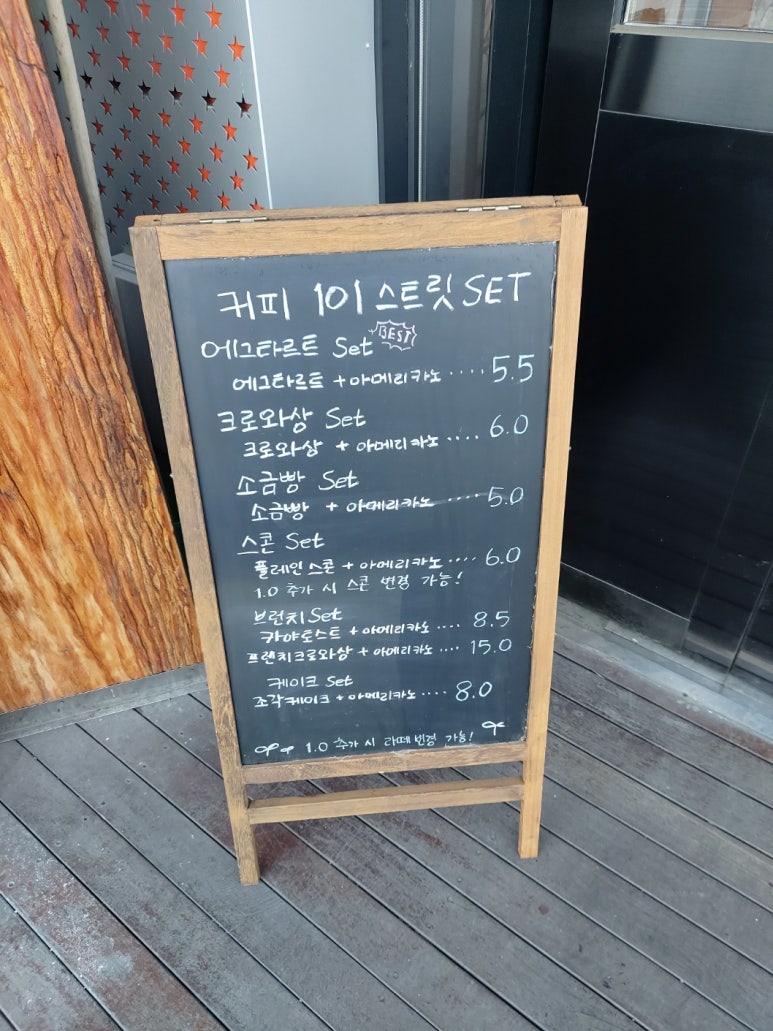 커피 101 스트릿 SET
에그타르트 Set BEST
에그타르트 + 아메리카노 ····· 5.5
크로와상 Set
크로와상 + 아메리카노 ···· 6.0
소금빵 Set
소금빵 + 아메리카노 ····· 5.0
스콘 Set
플레인 스콘 + 아메리카노 ···· 6.0
1.0 추가 시 스콘 변경 가능!
브런치 Set
카야토스트 + 아메리카노 ···· 8.5
프렌치크로와상 + 아메리카노 ···· 15.0
케이크 Set
조각케이크 + 아메리카노 ···· 8.0
1.0 추가 시 라떼 변경 가능!